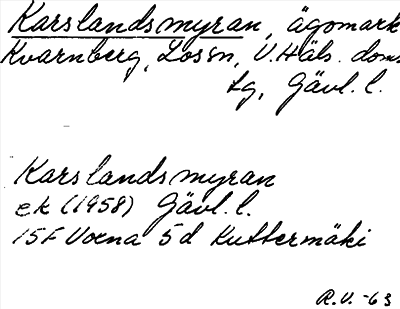 Karslandsmyran, ägomark
Kvarnberg, Los sn, V. Häls. doms
Lg, Gävl. l.
Karslandsmyran
ek (1958) Gävl. l.
15F Voxna 5d Kuttermäki
R.V. -63